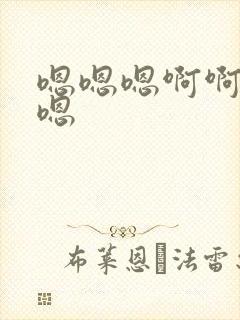 嗯嗯嗯啊啊
嗯
布莱恩 法雷